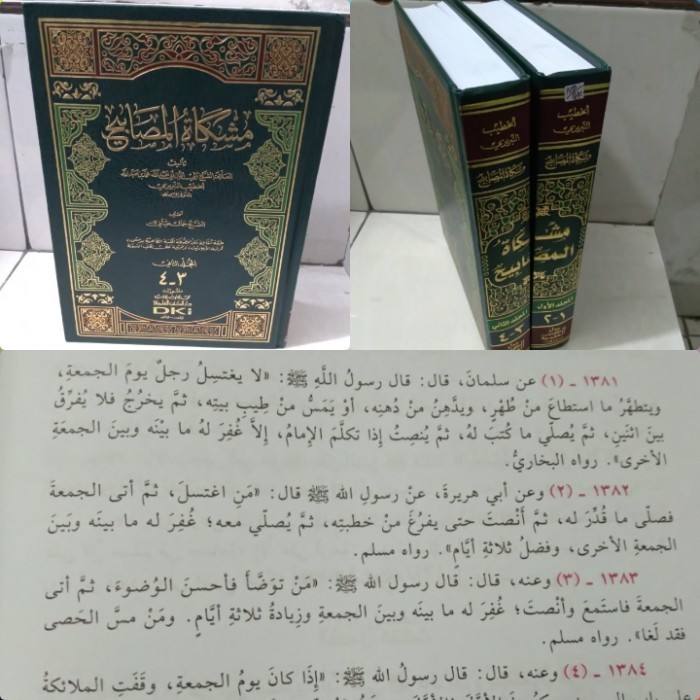 مشكاة المصابيح
تأليف
الخطيب التبريزي
المجلد الثاني
٣-٤
DKi
الخطيب
التبريزي
مشكاة المصابيح
مشكاة
المصابيح
المجلد الثاني
٣-٤
الخطيب
التبريزي
مشكاة المصابيح
مشكاة
المصابيح
المجلد الأول
١-٢
١٣٨١ - (١) عن سلمانَ، قال: قال رسولُ اللَّهِ ﷺ: «لا يغتسِلُ رجلٌ يومَ الجمعةِ،
ويتطهَّرُ ما استطاعَ منْ طُهْرٍ، ويدَّهِنُ منْ دُهنِه، أوْ يَمَسُّ منْ طِيبِ بيتِه، ثمَّ يخرُجُ فلا يُفرِّقُ
بينَ اثنَينِ، ثمَّ يُصلّي ما كُتبَ لهُ، ثمَّ يُنصِتُ إذا تكلَّمَ الإمامُ، إلاَّ غُفِرَ لهُ ما بيْنَه وبينَ الجمعَةِ
الأخرى». رواه البخاريُّ.
١٣٨٢ - (٢) وعن أبي هريرةَ، عنْ رسولِ الله ﷺ قال: «مَنِ اغتسلَ، ثمَّ أتى الجمعةَ
فصلّى ما قُدِّرَ له، ثمَّ أنْصتَ حتى يفرُغَ منْ خطبتِه، ثمَّ يُصلّي معه؛ غُفِرَ له ما بيتَه وبَينَ
الجمعةِ الأخرى، وفضلُ ثلاثةِ أيَّامٍ». رواه مسلم.
١٣٨٣ - (٣) وعنه، قال: قال رسول الله ﷺ: «مَنْ توَضَّأَ فأحسنَ الوُضوءَ، ثمَّ أتى
الجمعةَ فاستمعَ وأنْصتَ؛ غُفِرَ له ما بينَه وبينَ الجمعةِ وزِيادةُ ثلاثةِ أيَّامٍ. ومَنْ مسَّ الحَصى
فقد لَغا». رواه مسلم.
١٣٨٤ - (٤) وعنه، قال: قال رسولُ الله ﷺ: «إذا كانَ يومُ الجمعةِ، وقَفَتِ الملائكةُ